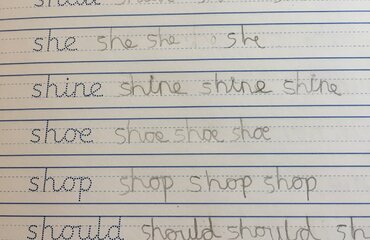 she she she she
shine shine shine shine
shoe shoe shoe shoe
shop shop shop shop
should should should sh